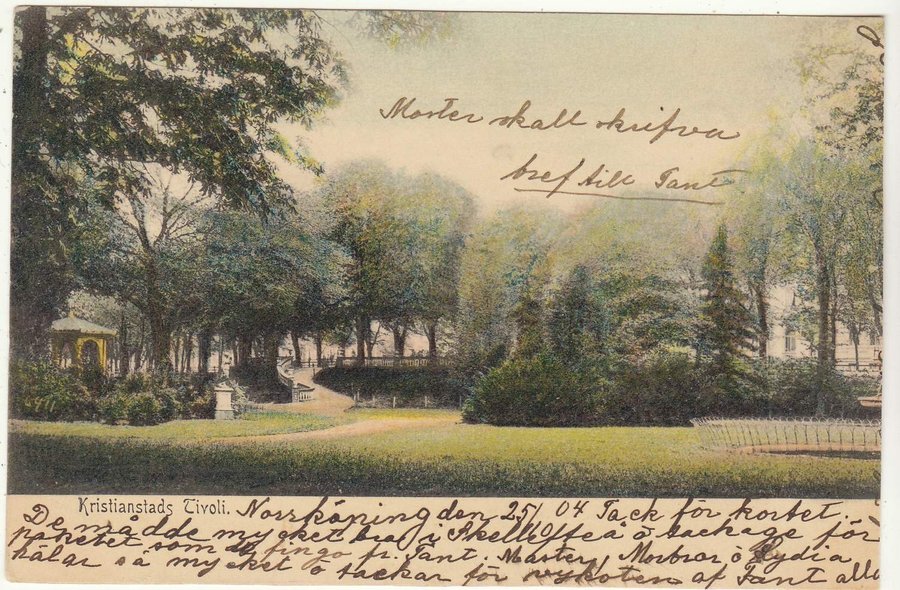 Moster skall skrifva
bref till Tant
Kristianstads Tivoli. Norrköping den 25/ 04 Tack för kortet.
De mådde mycket bra i Skellefteå o tackage för
paketet som de fingo fr. Tant. Moster, Morbror o Lydia
hälsar så mycket o tackar för vykorten af Tant alla